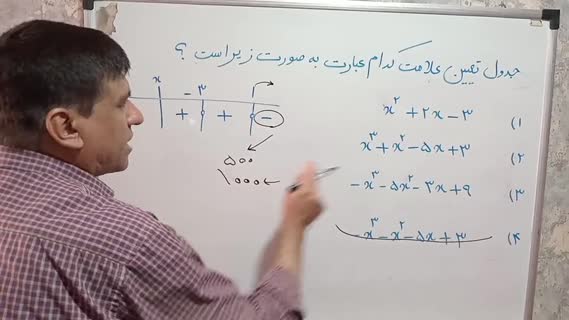 جدول تعیین علامت کدام عبارت به صورت زیر است ؟
x
-۳
+ + -
۵۰۰
۱۰۰۰
۱) x² + ۲x - ۳
۲) x³ + x² - ۵x + ۳
۳) -x³ - ۵x² - ۳x + ۹
۴) -x³ - x² - ۵x + ۳